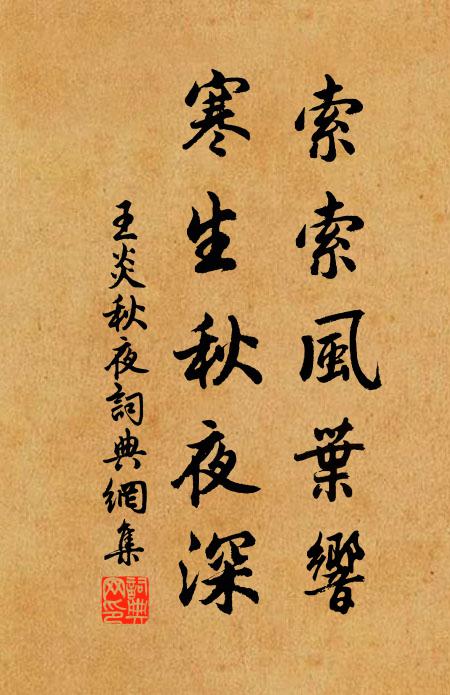 索索風葉響
寒生秋夜深
王炎秋夜詞典網集
詞典
网印